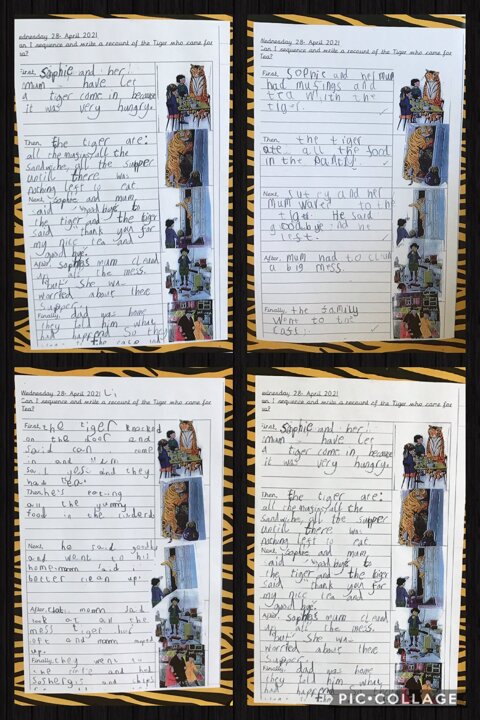 ednesday 28- April 2021
an I sequence and write a recount of the Tiger who came for
ea?
First, Sophie and her!
mum - have let
a tiger come in because
it was very hungry.
Then, the tiger are:
all the all the
all the supper
until there was
nothing left to eat.
Next, Sophie and mum
said bye to
the tiger and the tiger
said thank you for
my nice tea and
good bye.
After, mum
all the mess.
but she was
worried about there
supper.
Finally, dad was home
they told him what
had happend So they
ednesday 28- April 2021
Can I sequence and write a recount of the Tiger who came for
Tea?
First, Sophie and her mum
had and
tea with the
tiger.
Then, the tiger
ate all the food
in the
Next, and her
mum to the
tiger. He said
goodbye and he
left.
After, mum had to
a big mess.
Finally, the family
went to the
Wednesday 28- April 2021
Can I sequence and write a recount of the Tiger who came for
Tea?
First, the tiger knocked
on the door and
said can I come
in and
said yes and they
had tea.
Then, he's eating
all the yummy
food in the
Next, he said
and went to his
home. said
better clean up.
After, said
look at all the
mess tiger has
left and
up.
Finally, they went to
the cafe and had
and chips
ednesday 28- April 2021
an I sequence and write a recount of the Tiger who came for
ea?
First, Sophie and her!
mum - have let
a tiger come in because
it was very hungry.
Then, the tiger are:
all the all the
all the supper
until there was
nothing left to eat.
Next, Sophie and mum
said bye to
the tiger and the tiger
said thank you for
my nice tea and
good bye.
After, mum
all the mess.
but she was
worried about there
supper.
Finally, dad was home
they told him what
had
PIC•COLLAGE